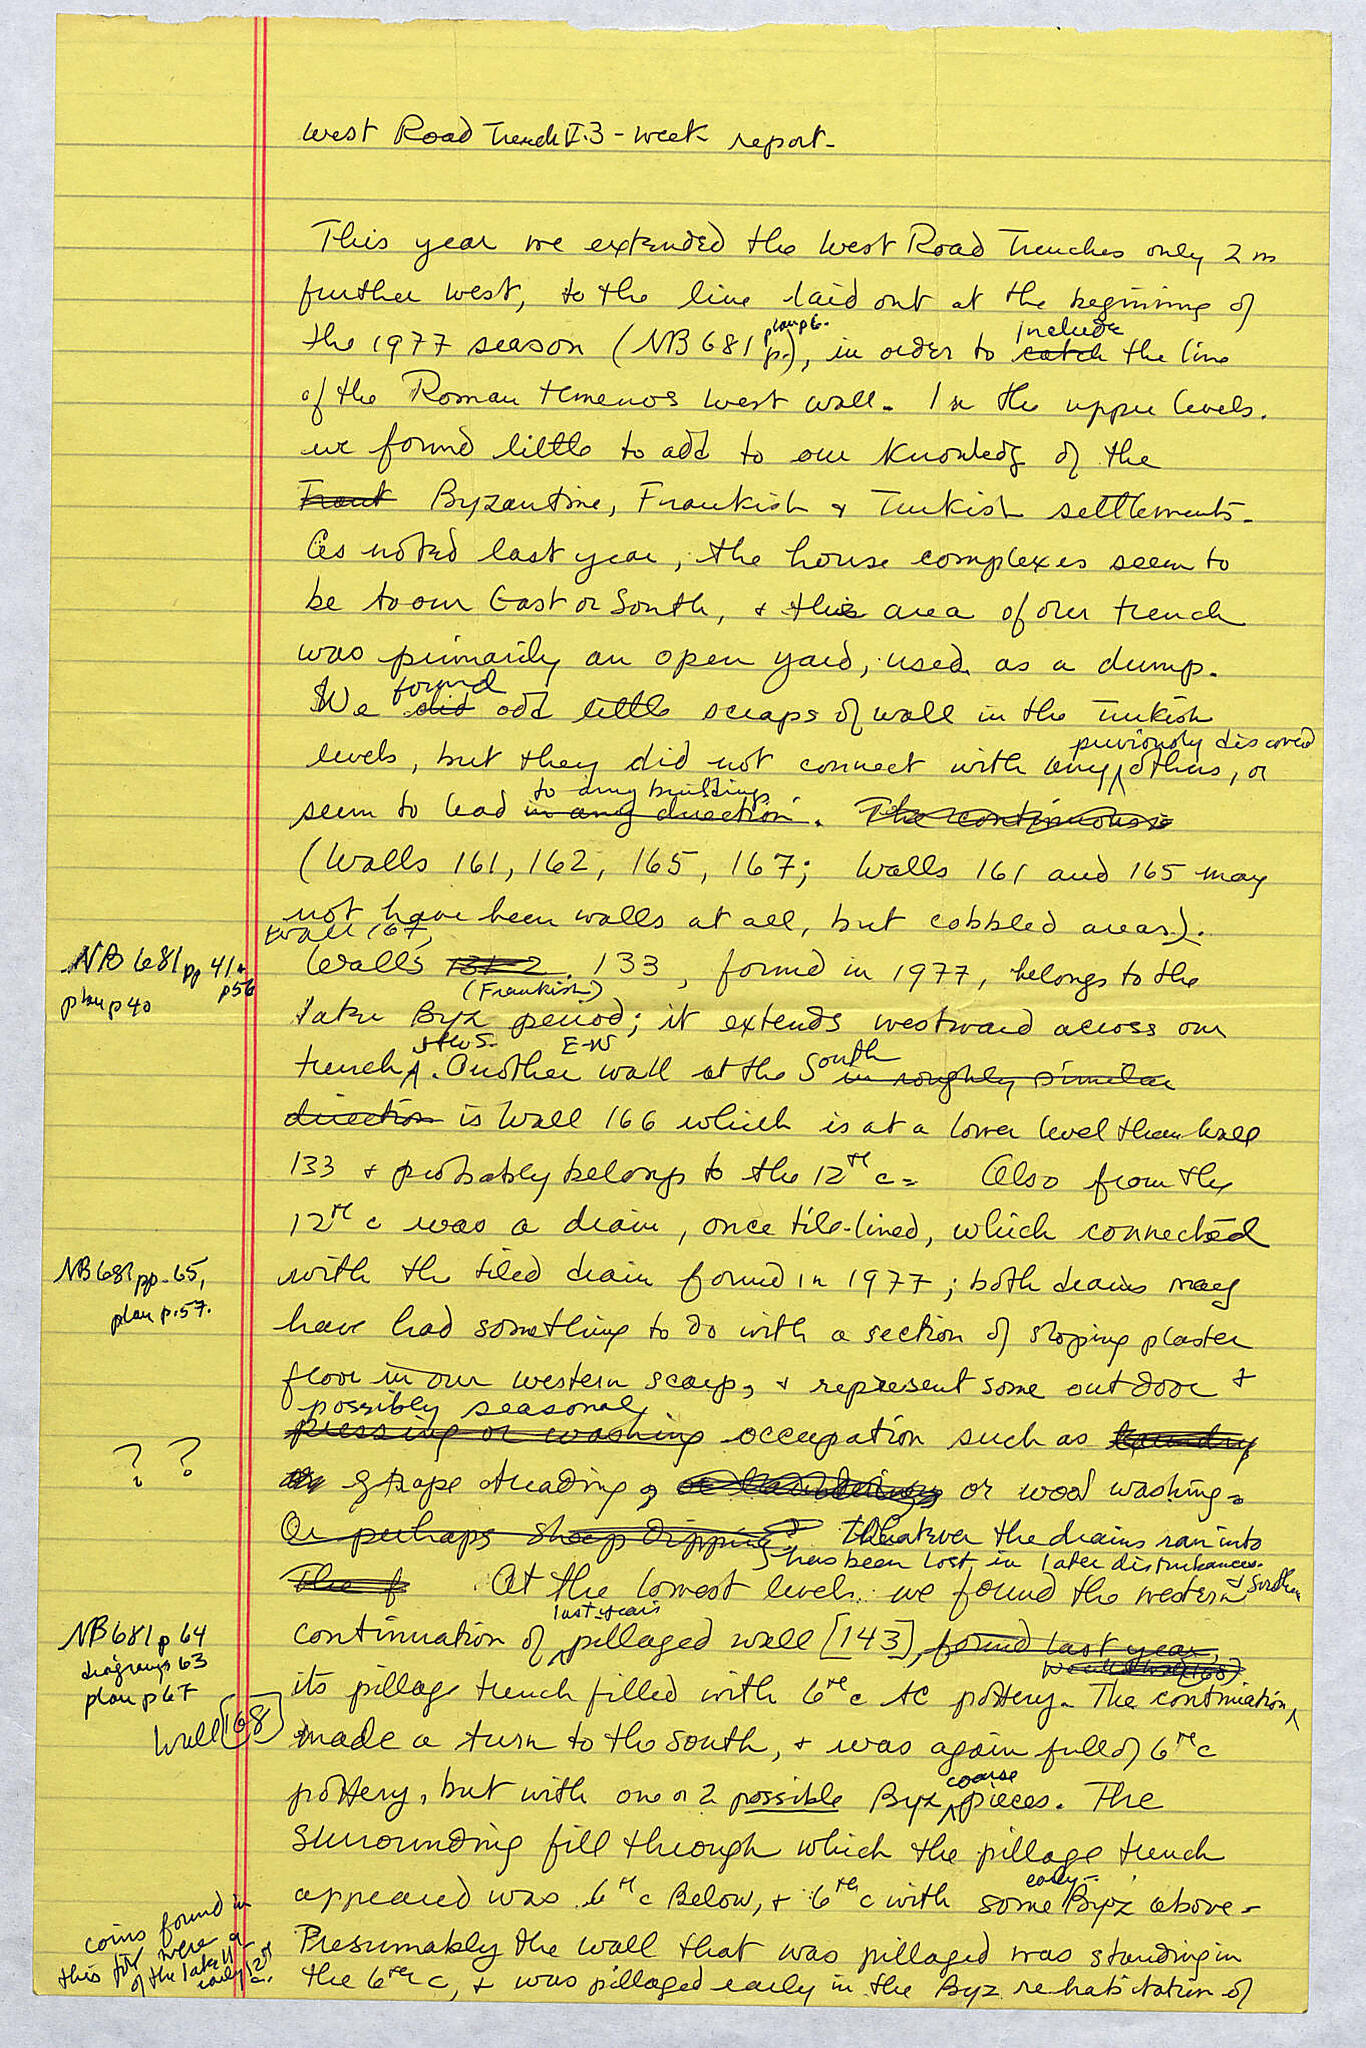 West Road Trench V. 3-week report-
This year we extended the West Road Trenches only 2 m
further west, to the line laid out at the beginning of
plan p 6.
include
the 1977 season (NB 681 p.), in order to catch the line
of the Roman temenos west wall. In the upper levels.
we found little to add to our knowledg of the
Byzantine, Frankish & Turkish settlements-
As noted last year, the house complexes seem to
be to our East or South, & this area of our trench
was primarily an open yard, used as a dump.
found
We did odd little scraps of wall in the Turkish
previously discovered
levels, but they did not connect with any others, or
to any buildings
seem to lead in any direction. The continuous
(Walls 161, 162, 165, 167; Walls 161 and 165 may
not have been walls at all, but cobbled areas).
Wall 167,
NB 681 pp 41-
p 56
plan p 40
Walls 131-2. 133, found in 1977, belongs to the
(Frankish)
later Byz period; it extends westward across our
E-W
South
trench. Another wall at the in roughly similar
direction is Wall 166 which is at a lower level than wall
133 & probably belongs to the 12th c. Also from the
12th c was a drain, once tile-lined, which connected
NB 681 pp-65,
plan p.57.
with the tiled drain found in 1977; both drains may
have had something to do with a section of sloping plaster
floor in our western scarp, & represent some outdoor &
possibly seasonal
pressing or washing occupation such as laundry
? ?
grape treading, or wool washing.
Or perhaps sheep dipping? Whatever the drains ran into
has been lost in later disturbances.
The f At the lowest levels we found the western
& Southern
last year's
NB 681 p 64
diagrams 63
plan p 67
continuation of pillaged wall [143], found last year,
its pillage trench filled with 6th c AC pottery. The continuation
Wall [168]
made a turn to the south, & was again full of 6th c
coarse
pottery, but with one or 2 possible Byz pieces. The
surrounding fill through which the pillage trench
early
appeared was 6th c Below, & 6th c with some Byz above-
coins found in
this fill were
of the late 11-
early 12th
c.
Presumably the wall that was pillaged was standing in
the 6th c, & was pillaged early in the Byz rehabitation of